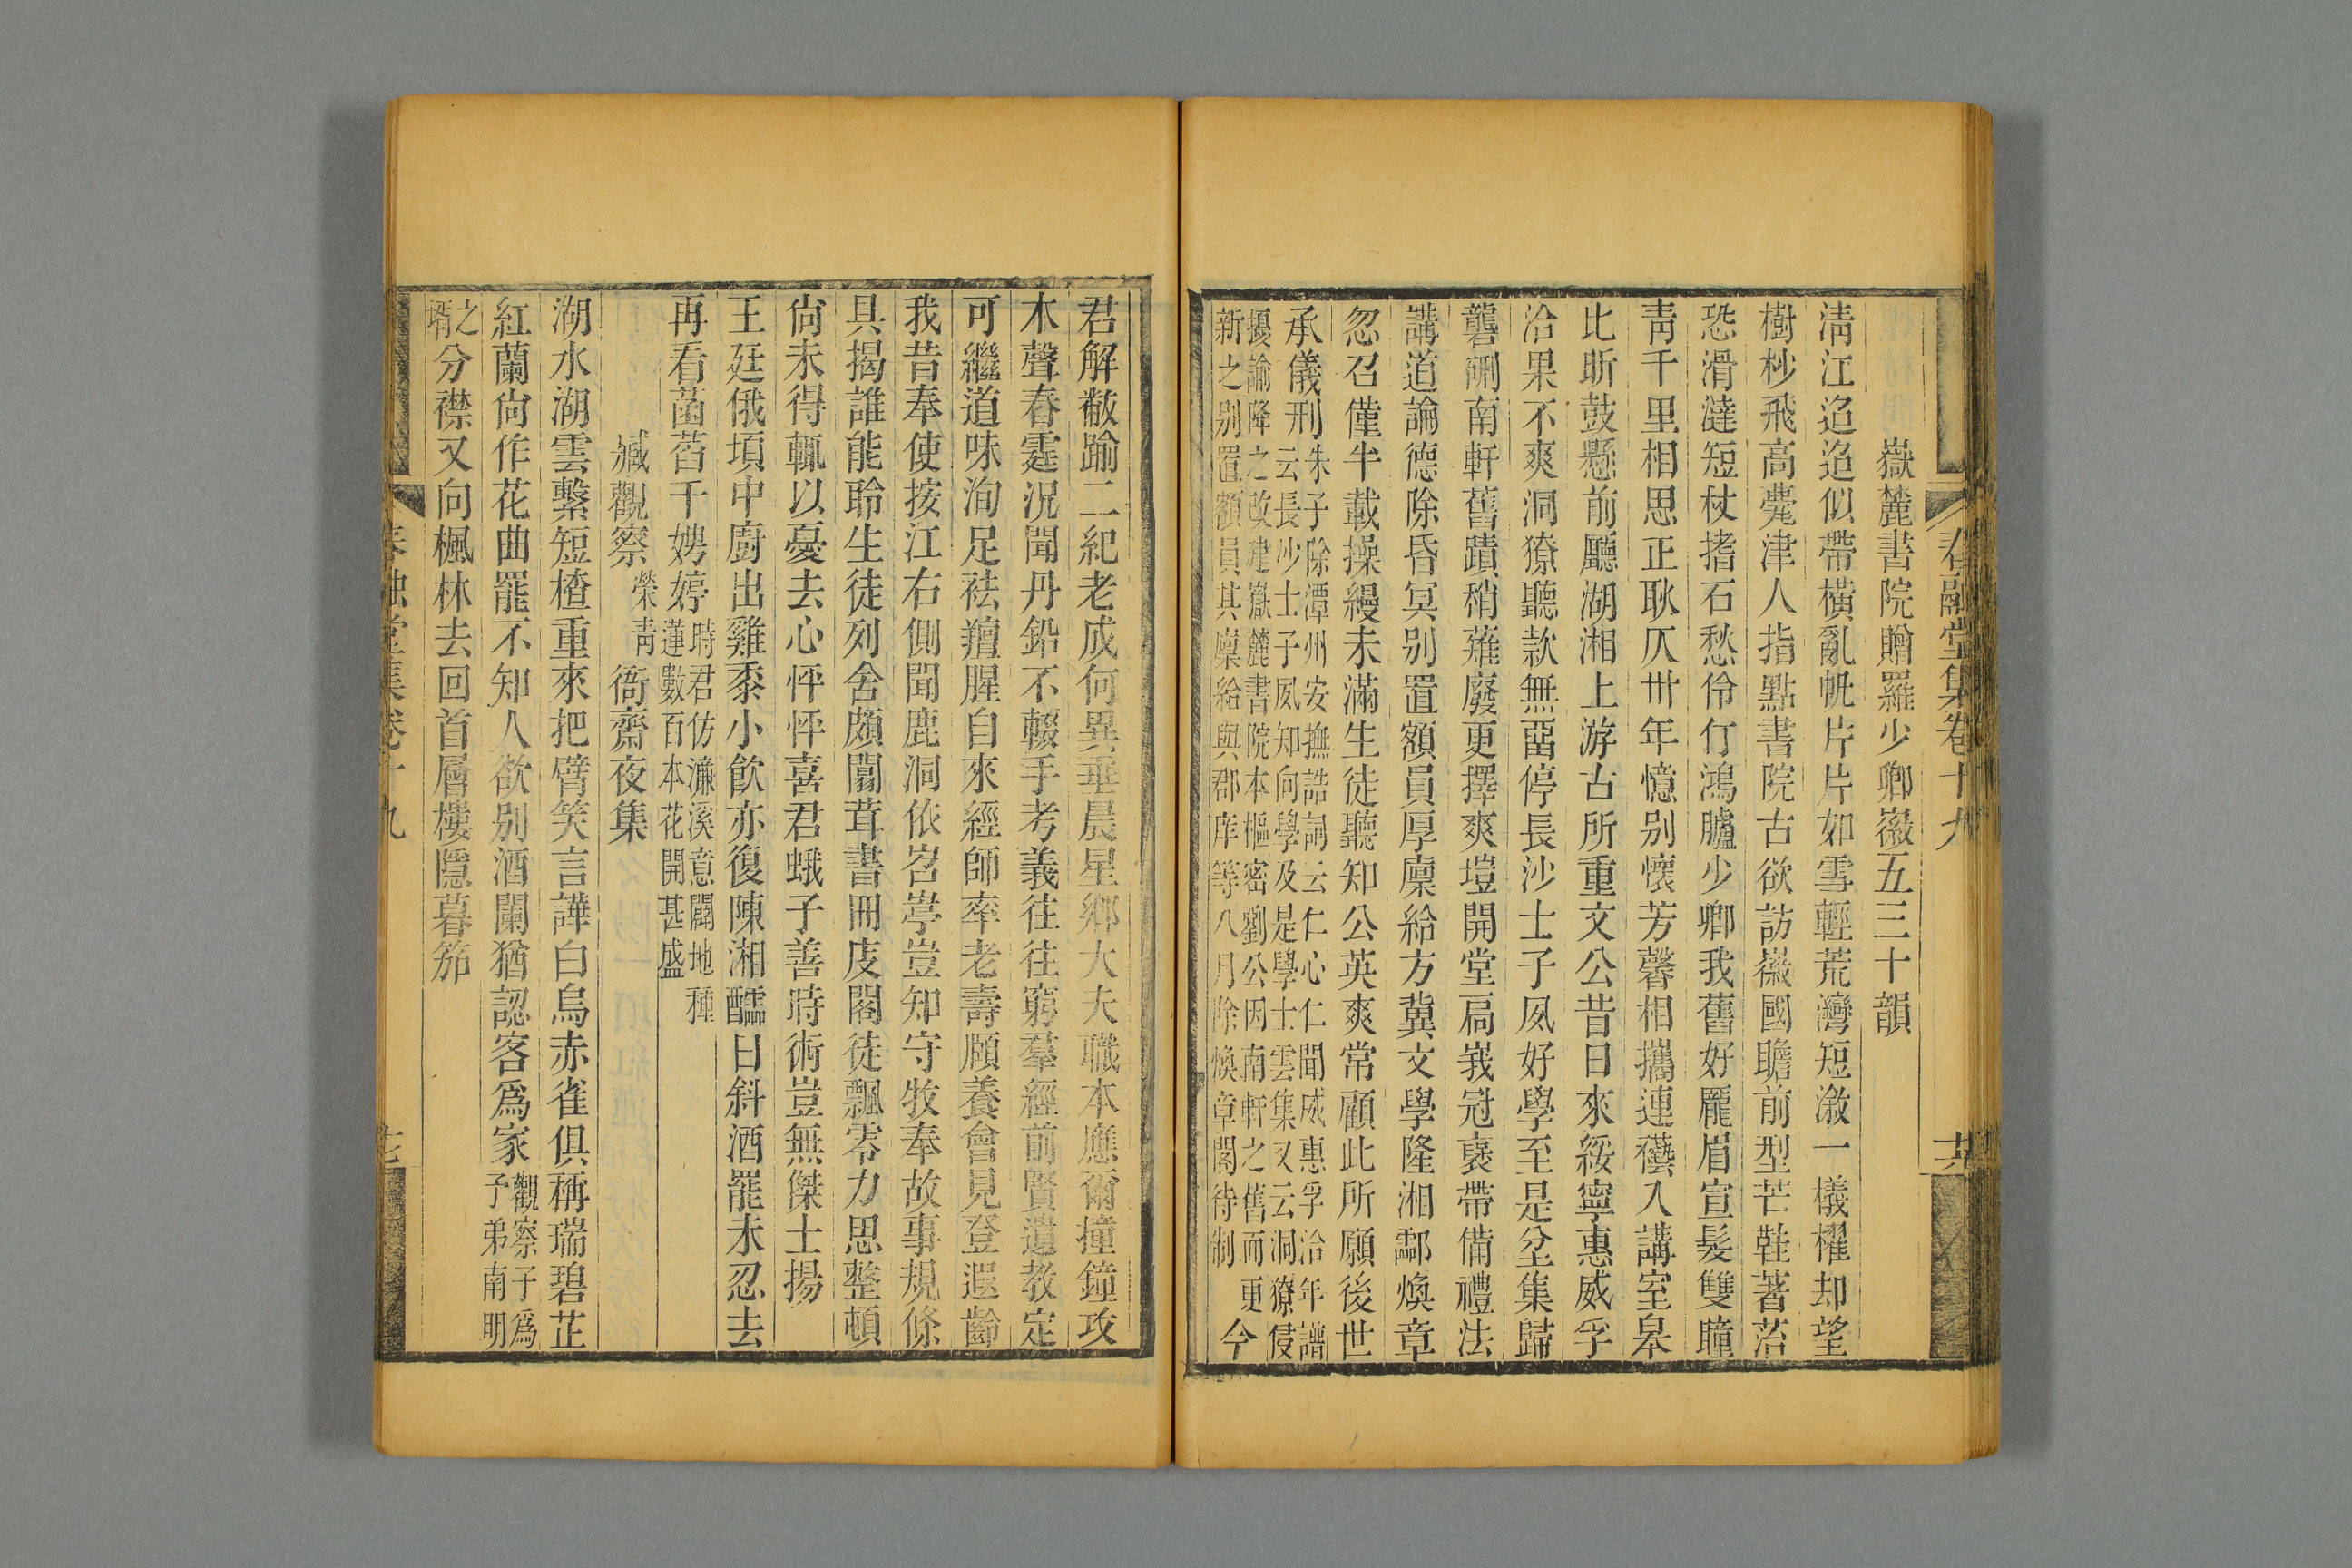 春融堂集卷十九
共
嶽麓書院贈羅少卿徽五三十韻
清江迢迢似帶橫亂帆片片如雪輕荒灣短潊一檥櫂却望
樹杪飛高甍津人指點書院古欲訪徽國瞻前型芒鞋著莟
恐滑澾短杖揩石愁伶仃鴻臚少卿我舊好厖眉宣髮雙瞳
靑千里相思正耿仄卅年憶别懷芳馨相攜連襼入講室臯
比昕鼓懸前廳湖湘上游古所重文公昔日來綏寧惠威孚
洽果不爽洞獠聽款無畱停長沙士子夙好學至是坌集歸
礱硎南軒舊蹟稍蕹廢更擇爽塏開堂扃峩冠裒帶備禮法
講道論德除昏冥别置額員厚廩給方冀文學隆湘酃煥章
忽召僅半載操縵未滿生徒聽知公英爽常顧此所願後世
承儀刑
朱子除潭州安撫誥詞云仁心仁聞威惠孚洽年譜
云長沙士子夙知向學及是學士雲集又云洞獠侵
擾諭降之改建嶽麓書院本樞密劉公因南軒之舊而更
新之别置額員其廩給與郡庠等八月除煥章閣待制
今
君解敝踰二紀老成何異垂晨星鄉大夫職本應爾撞鐘攻
木聲春霆況聞丹鉛不輟手考義往往窮羣經前賢遺教定
可繼道味洵足祛羶腥自來經師率老壽願養會見登遐齡
我昔奉使按江右側聞鹿洞依岧嶤豈知守牧奉故事規條
具揭誰能聆生徒列舍頗闒茸書冊庋閣徒飄零力思整頓
尙未得輒以憂去心怦怦喜君蛾子善時術豈無傑士揚
王廷俄頃中廚出雞黍小飲亦復陳湘醽日斜酒罷未忍去
再看菡萏千娉婷
時君仿濂溪意闢地種
蓮數百本花開甚盛
臧觀察榮靑衙齋夜集
湖水湖雲繫短楂重來把臂笑言譁白烏赤雀俱稱瑞碧芷
紅蘭尙作花曲罷不知人欲别酒闌猶認客爲家
觀察子爲
予弟南明
之
壻
分襟又向楓林去回首層樓隱暮笳
春融堂集卷十九